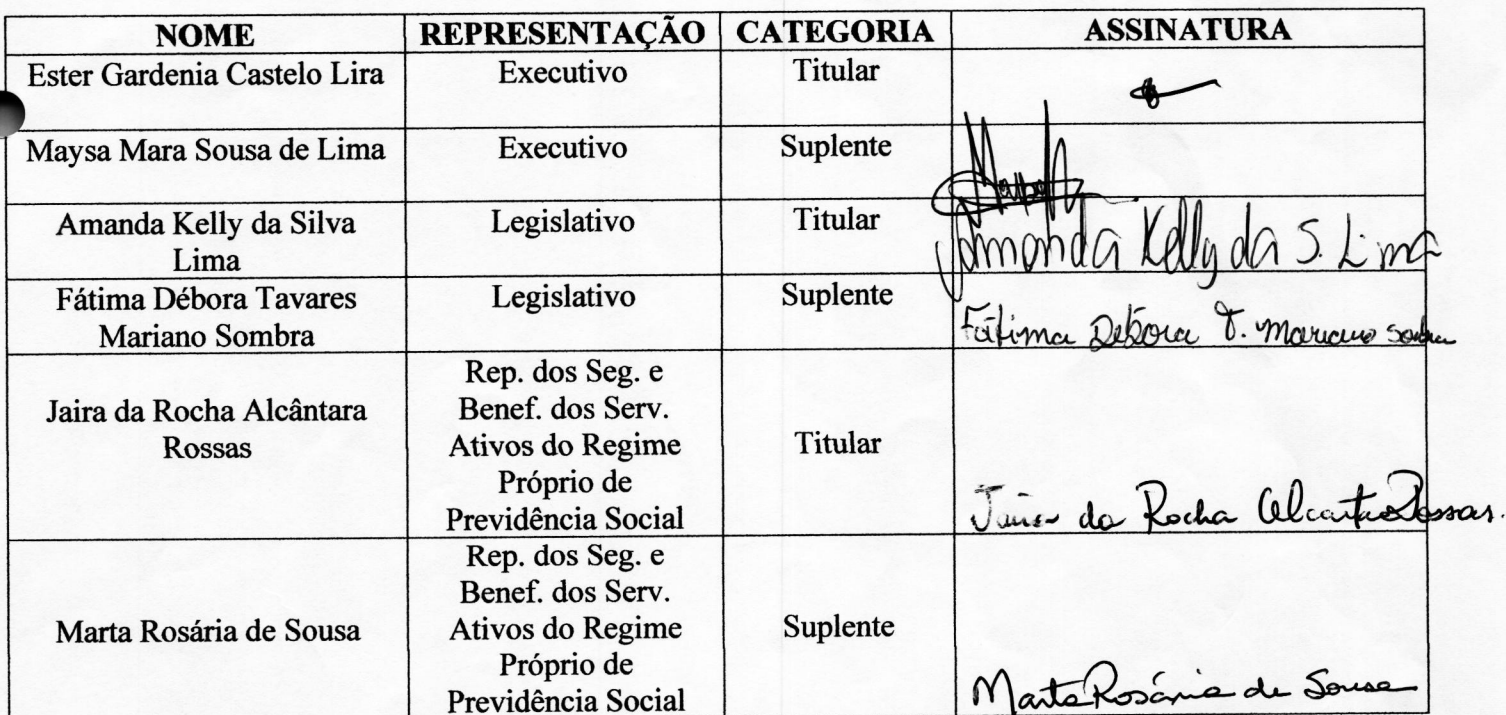 NOME REPRESENTAÇÃO CATEGORIA ASSINATURA
Ester Gardenia Castelo Lira Executivo Titular
Maysa Mara Sousa de Lima Executivo Suplente
Amanda Kelly da Silva
Lima
Legislativo Titular Amanda Kelly da S. Lima
Fátima Débora Tavares
Mariano Sombra
Legislativo Suplente Fátima Débora T. Mariano Sombra
Jaira da Rocha Alcântara
Rossas
Rep. dos Seg. e
Benef. dos Serv.
Ativos do Regime
Próprio de
Previdência Social
Titular
Jaira da Rocha Alcantra Rossas.
Marta Rosária de Sousa
Rep. dos Seg. e
Benef. dos Serv.
Ativos do Regime
Próprio de
Previdência Social
Suplente
Marta Rosária de Sousa